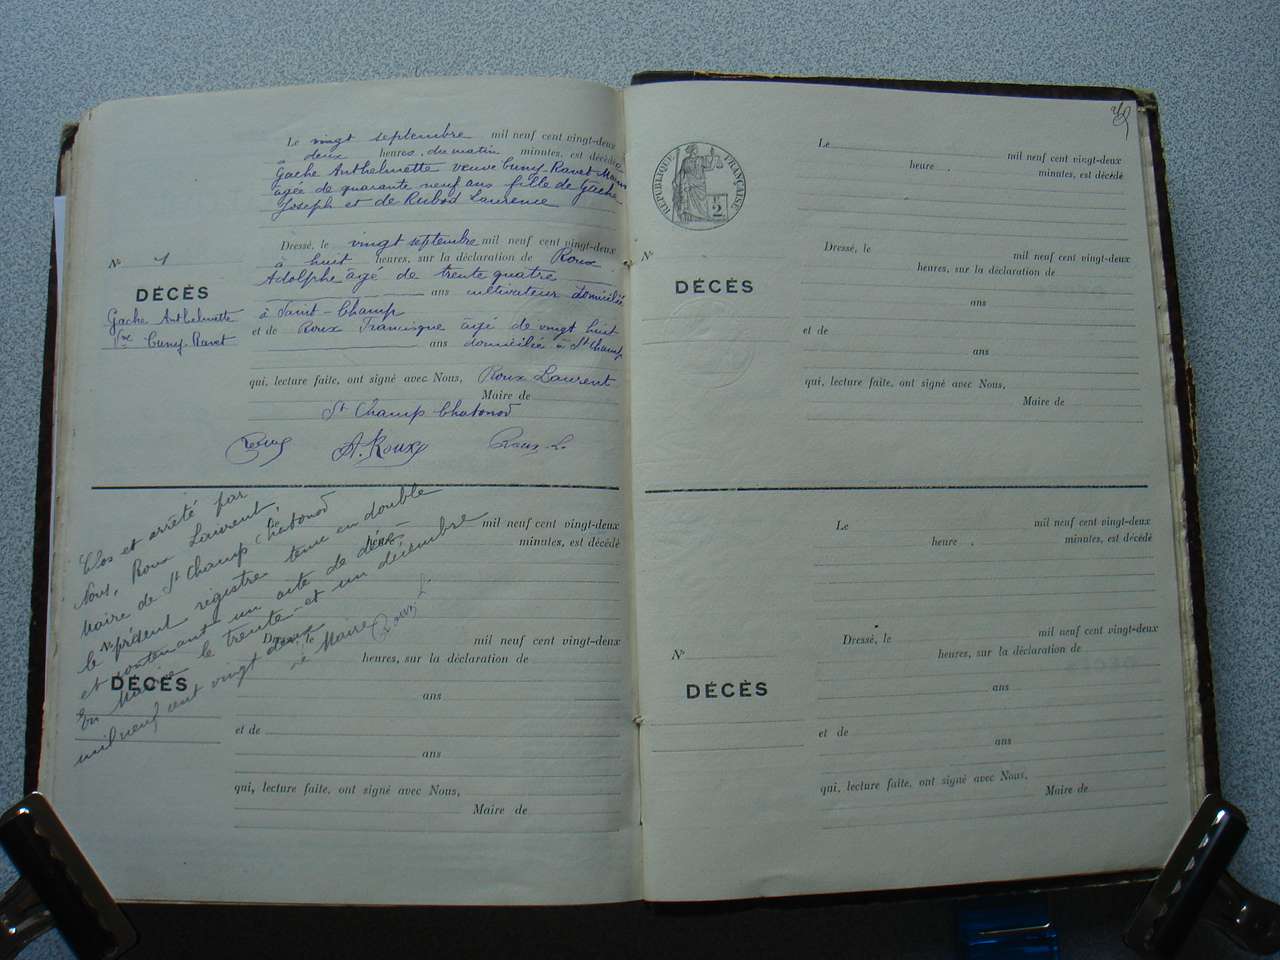 Le vingt septembre mil neuf cent vingt-deux
à deux heures du matin minutes, est décédée
Gache Anthelmette veuve Cuny-Ravet
âgée de quarante neuf ans fille de Gache
Joseph et de Rubod Laurence
Dressé, le vingt septembre mil neuf cent vingt-deux
à huit heures, sur la déclaration de Roux
Adolphe âgé de trente quatre
ans cultivateur domicilié
à Saint-Champ
et de Roux Francisque âgé de vingt huit
ans domicilié à St Champ
qui, lecture faite, ont signé avec Nous, Roux Laurent
Maire de
St Champ Chatonod
A. Roux Roux L.
No 1
DÉCÈS
Gache Anthelmette
Vve Cuny-Ravet
Clos et arrêté par
Nous, Roux Laurent,
Maire de St Champ Chatonod
le présent registre tenu en double
et contenant un acte de décès
En Mairie le trente et un décembre
mil neuf cent vingt deux
Le Maire Roux L.
mil neuf cent vingt-deux
heure minutes, est décédé
Dressé, le mil neuf cent vingt-deux
heures, sur la déclaration de
No
DÉCÈS
ans
et de
ans
qui, lecture faite, ont signé avec Nous,
Maire de
RÉPUBLIQUE FRANÇAISE
2
Le mil neuf cent vingt-deux
heure minutes, est décédé
Dressé, le mil neuf cent vingt-deux
heures, sur la déclaration de
No
DÉCÈS
ans
et de
ans
qui, lecture faite, ont signé avec Nous,
Maire de
Le mil neuf cent vingt-deux
heure minutes, est décédé
Dressé, le mil neuf cent vingt-deux
heures, sur la déclaration de
No
DÉCÈS
ans
et de
ans
qui, lecture faite, ont signé avec Nous,
Maire de